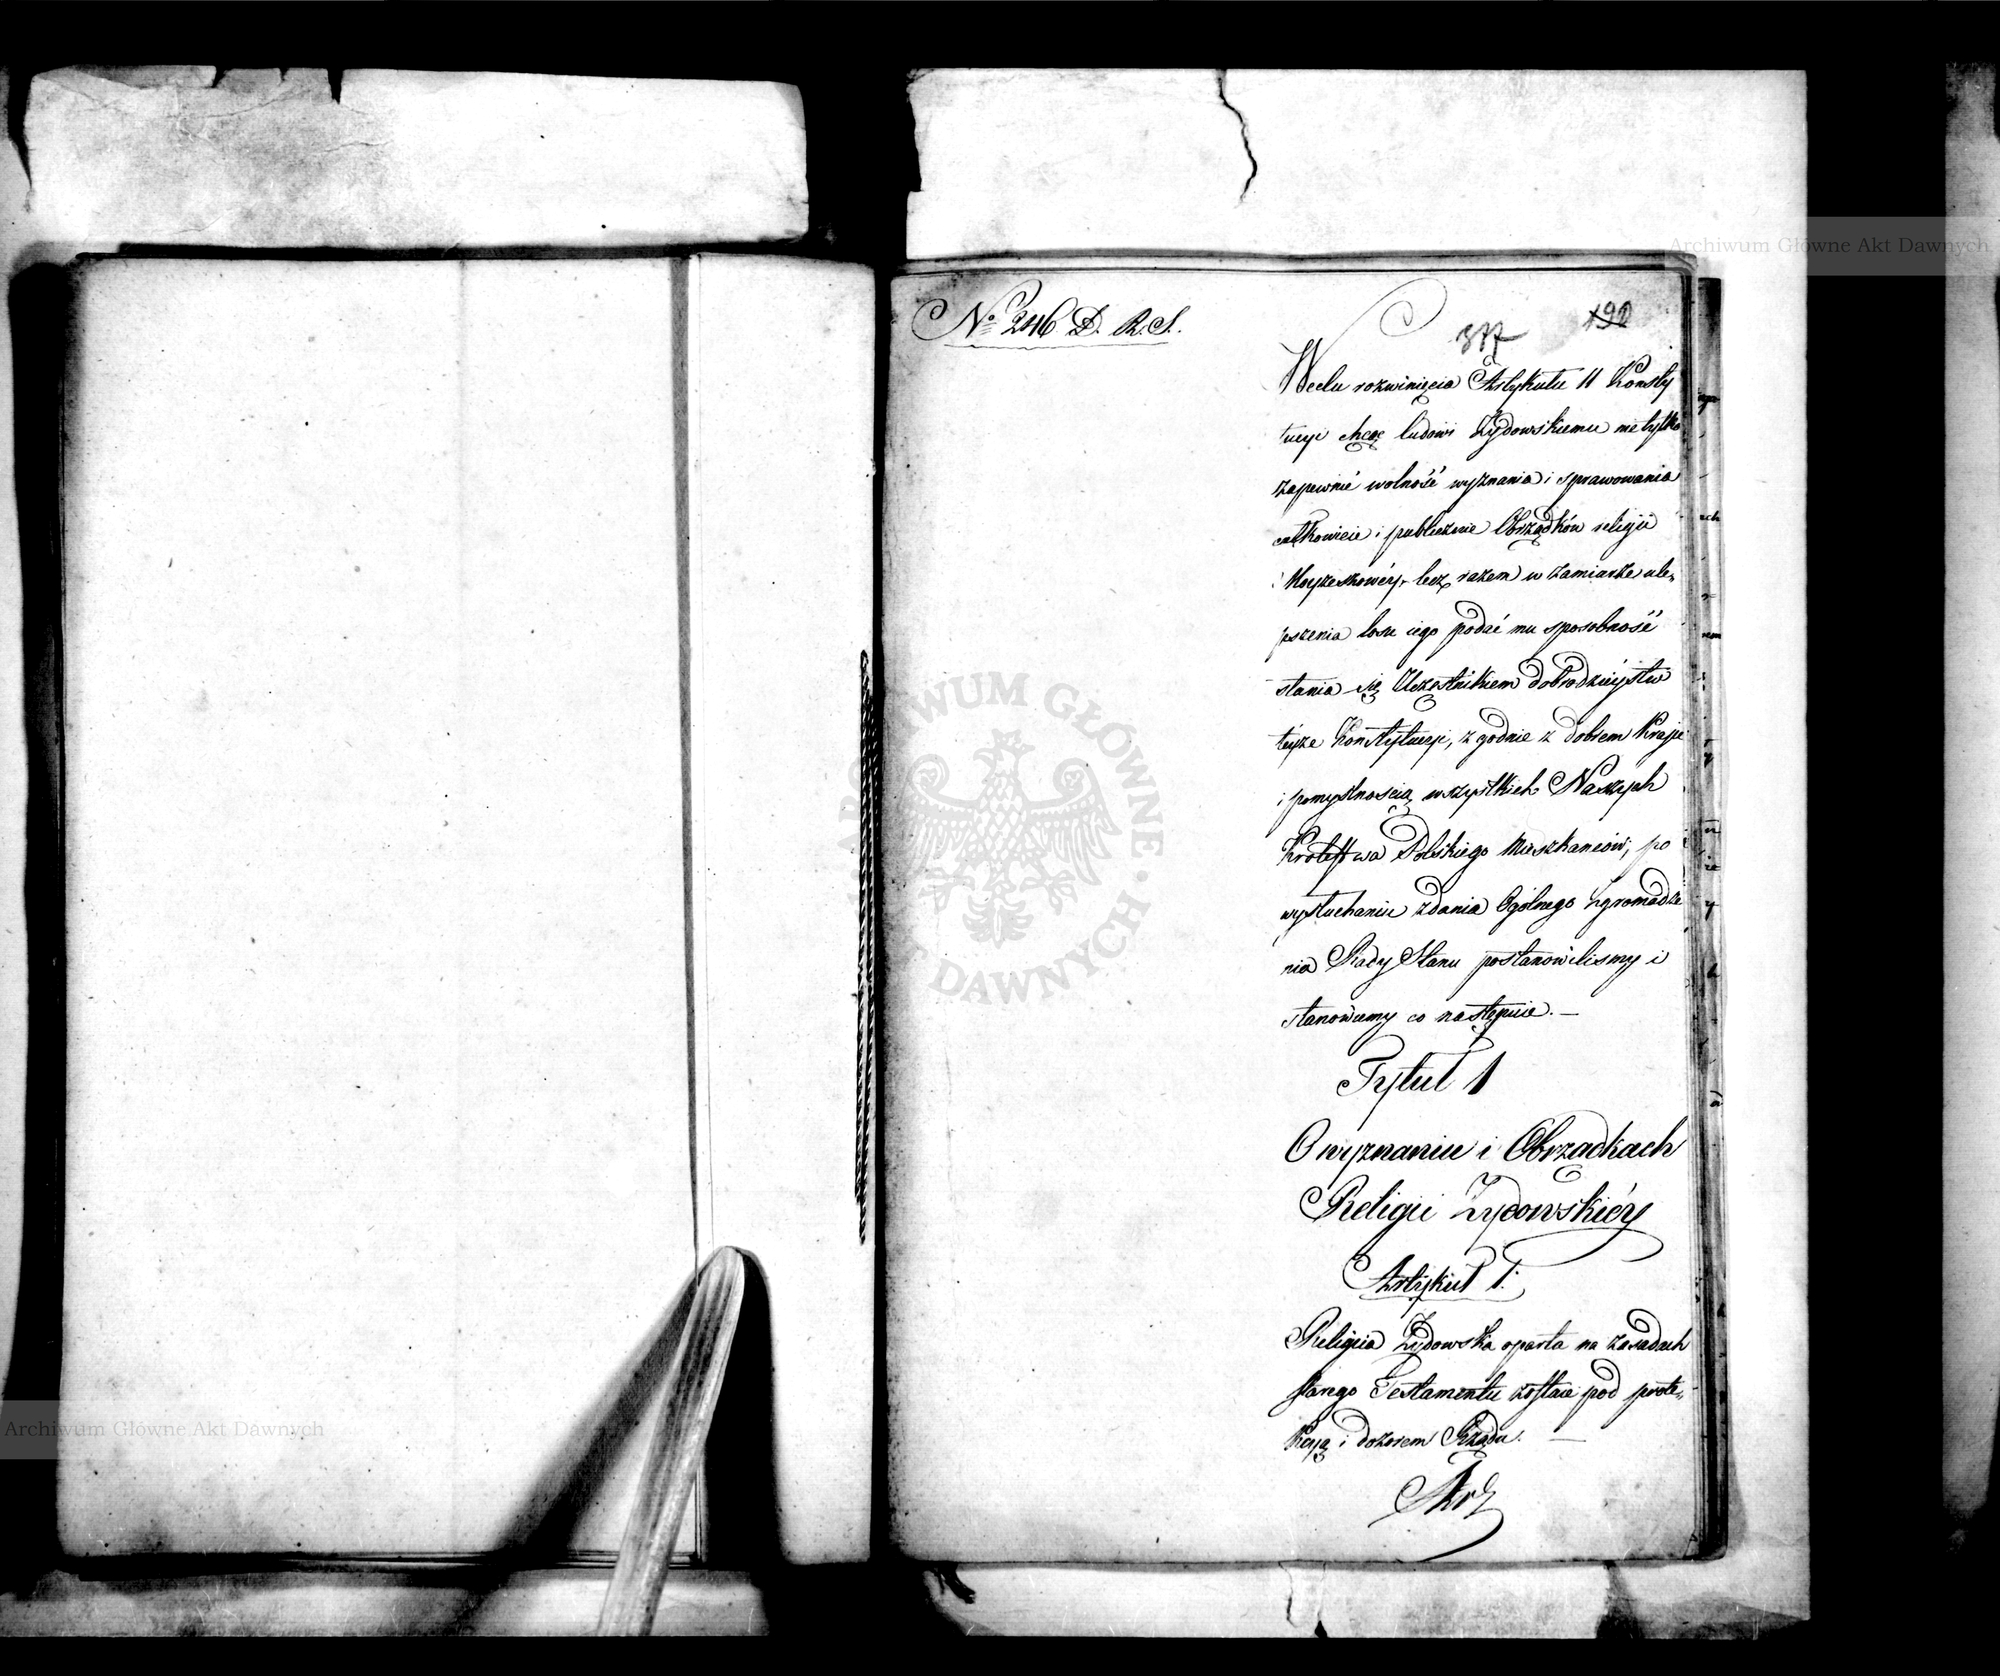 No 246 D. R. S.
317
190
W celu rozwinięcia Artykułu 11 Konsty
tucyi chcąc ludowi Żydowskiemu nie tylko
zapewnić wolność wyznania i sprawowania
całkowicie i publicznie Obrządków religii
Moyżeszowéy, lecz razem w zamiarze ule„
pszenia losu iego podać mu sposobność
stania się Uczestnikiem dobrodzieystw
teyże Konstytucyi, zgodnie z dobrem Kraju
i pomyślnością wszystkich Naszych
Królestwa Polskiego Mieszkańców, po
wysłuchaniu zdania Ogólnego Zgromadze
nia Rady Stanu postanowiliśmy i
stanowiemy co następuie. —
Tytuł 1
O wyznaniu i Obrządkach
Religii Żydowskiéy
Artykuł 1.
Religiia Żydowska oparta na zasadach
starego Testamentu zostaie pod prote„
kcyą i dozorem Rządu. —
Art
ARCHIWUM GŁÓWNE AKT DAWNYCH
Archiwum Główne Akt Dawnych
Archiwum Główne Akt Dawnych